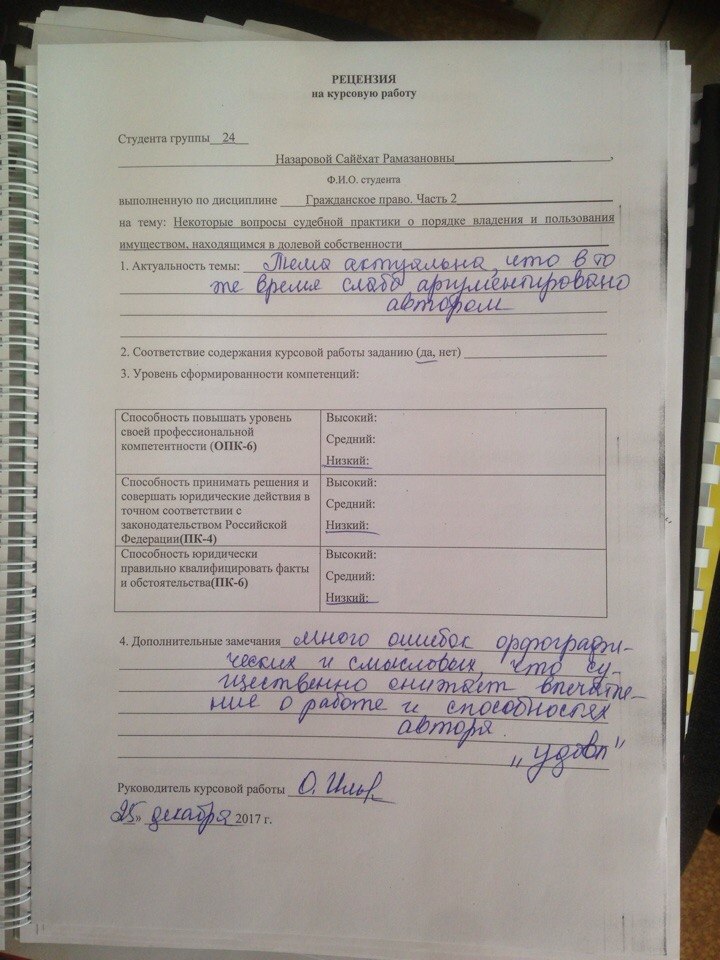 РЕЦЕНЗИЯ
на курсовую работу
Студента группы 24
Назаровой Сайёхат Рамазановны,
Ф.И.О. студента
выполненную по дисциплине Гражданское право. Часть 2
на тему: Некоторые вопросы судебной практики о порядке владения и пользования
имуществом, находящимся в долевой собственности
1. Актуальность темы: Тема актуальна, что в то
же время слабо аргументировано
автором
2. Соответствие содержания курсовой работы заданию (да, нет)
3. Уровень сформированности компетенций:
Способность повышать уровень
своей профессиональной
компетентности (ОПК-6)
Высокий:
Средний:
Низкий:
Способность принимать решения и
совершать юридические действия в
точном соответствии с
законодательством Российской
Федерации(ПК-4)
Высокий:
Средний:
Низкий:
Способность юридически
правильно квалифицировать факты
и обстоятельства(ПК-6)
Высокий:
Средний:
Низкий:
4. Дополнительные замечания много ошибок орфографи-
ческих и смысловых, что су-
щественно снижает впечатле-
ние о работе и способностях
автора.
„удовл"
Руководитель курсовой работы О.
25» декабря 2017 г.